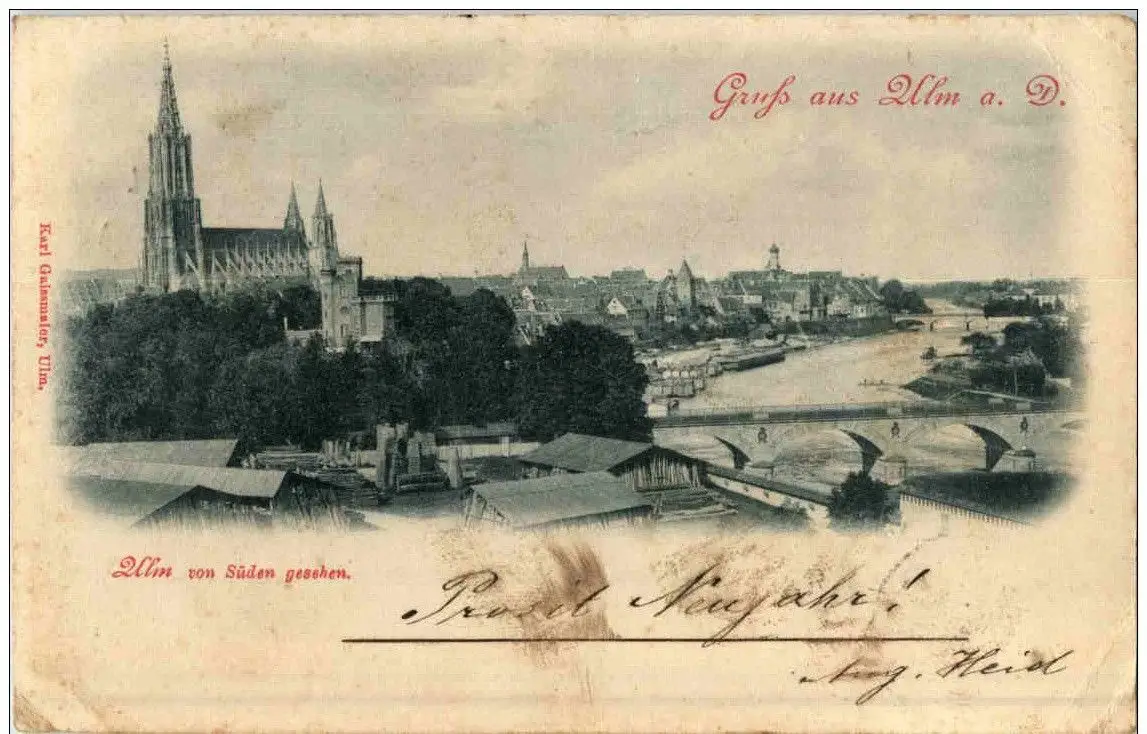 Gruß aus Ulm a. D.
Karl Gaissmaier, Ulm.
Ulm von Süden gesehen.
Prosit Neujahr!
Aug. Heid